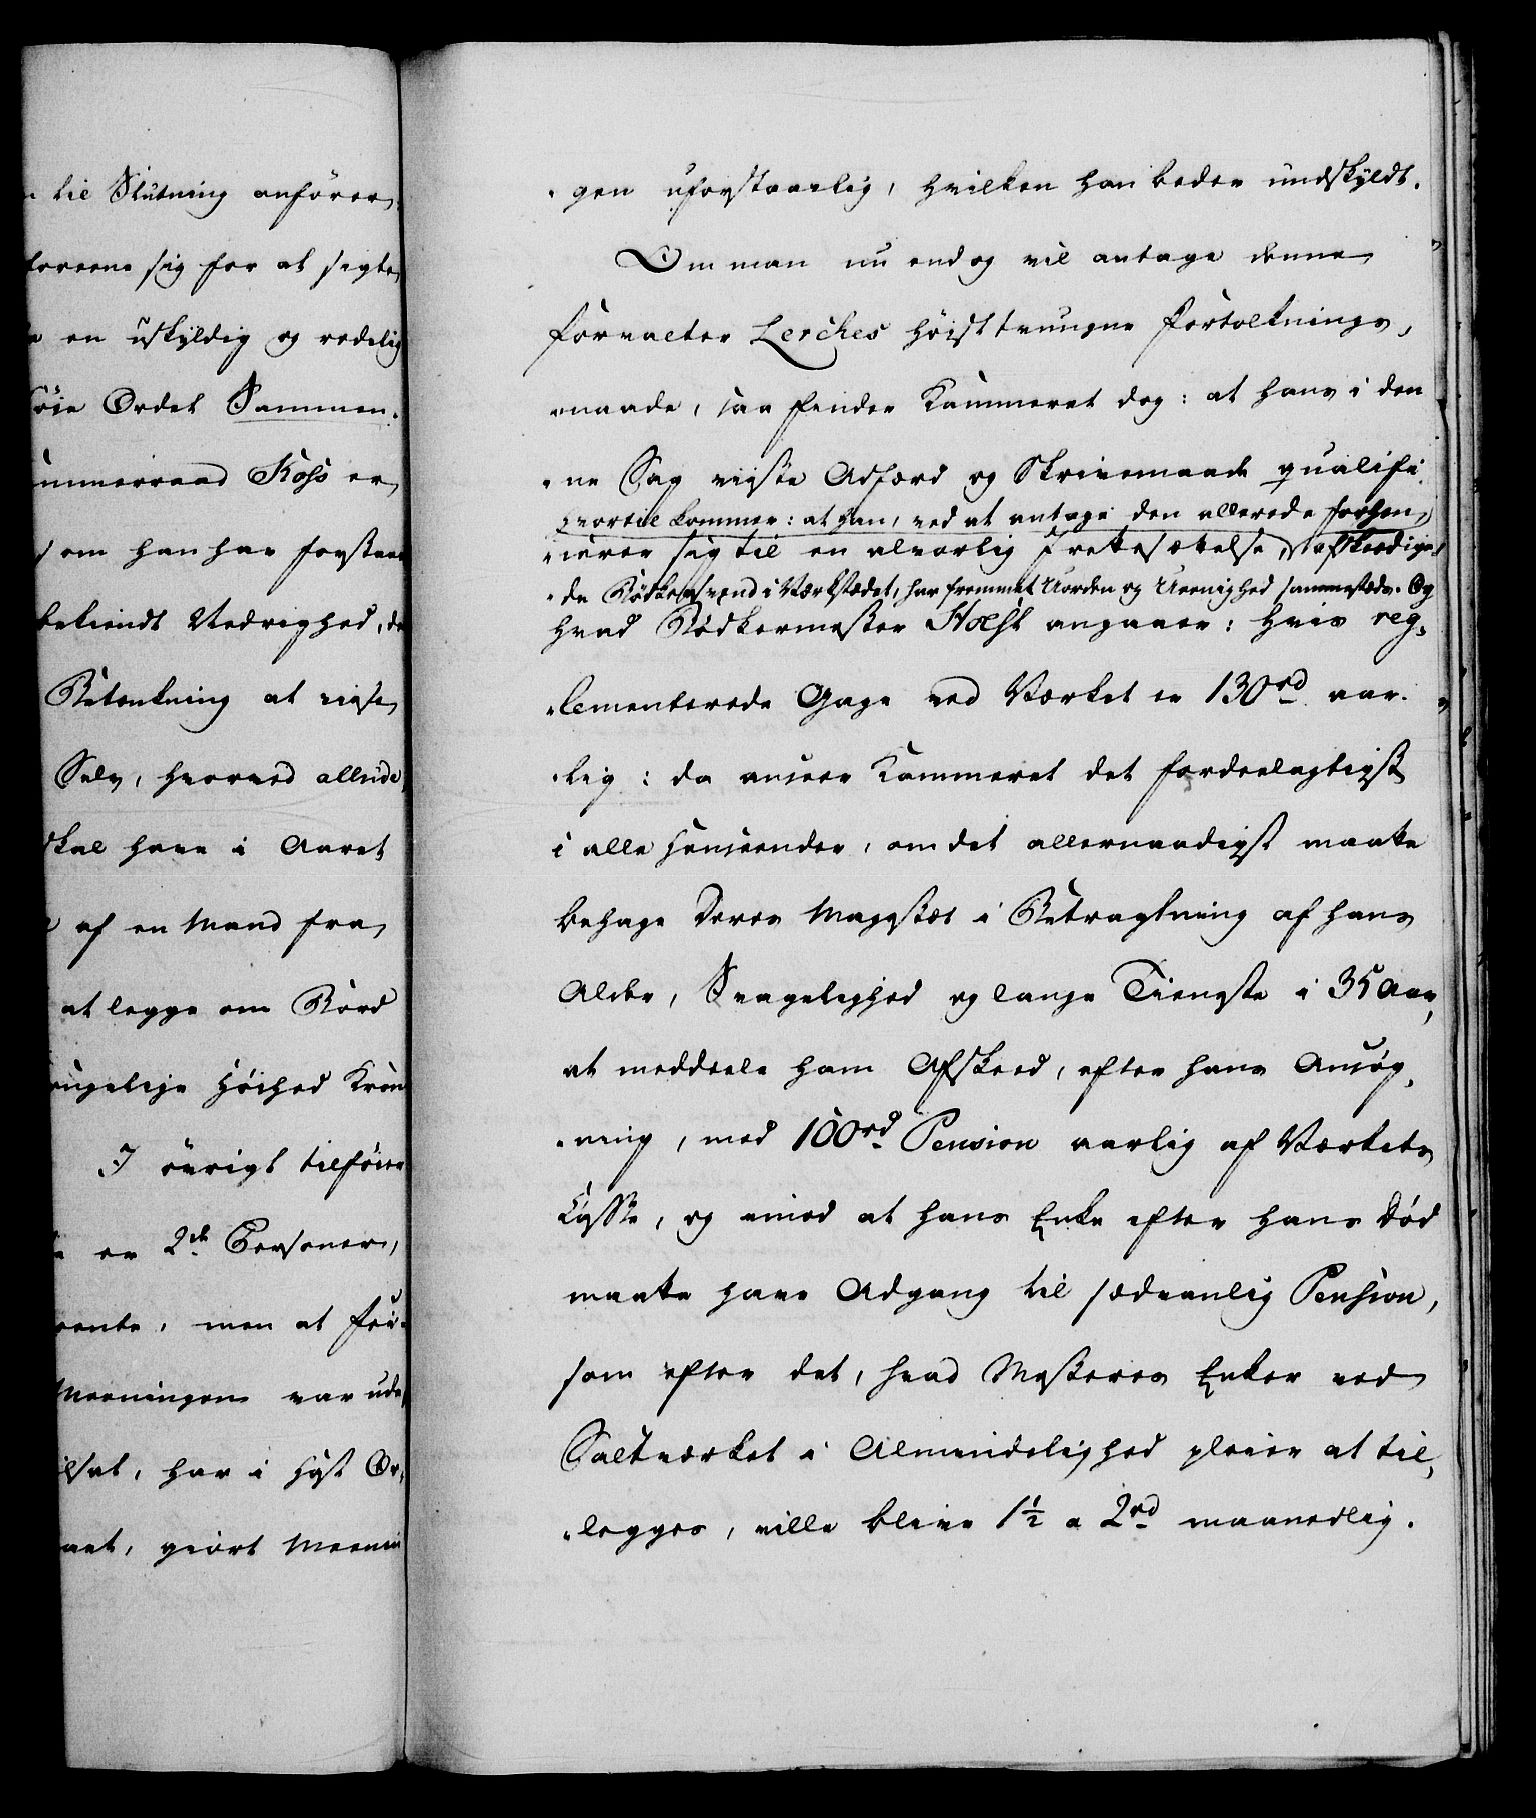 til Slutning anfører,
sig for at sigte
en uskyldig og redelig
Ordet Sammen.
Koss er
som han har forstaaet
bekiendt Nedrighed, de
Betænkning at viise
Selv, hvorved allude
skal have i Aaret
af en Mand fra
at legge om Bord
Høihed Kron
I øvrigt tilføier
er 2de Personer,
men at for
Meeningen var ude
har i Høist Or
giort Meenin
-gen uforstaaelig, hvilken han beder undskyldt.
Om man nu endog vil antage denne
Forvalter Lerches høist tvungne Fortolknings,
-maade, saa finder Kammeret dog: at hans i den
-ne Sag viiste Adfærd og Skrivemaade qualifi
hvortil kommer: at han, ved at antage den allerede forhen,
-cerer sig til en alvorlig Irettesættelse, afskedige
-de Bødkersvend i Værkstædet, har fremmet Uorden og Ueenighed sammesteds. Og
hvad Bødkermester Holst angaaer: hvis reg,
-lementerede Gage ved Værket er 130 rd aar.
-lig: da anseer Kammeret det fordeelagtigst
i alle Henseender, om det allernaadigst maatte
behage Deres Majestæt i Betragtning af hans
Alder, Svagelighed og lange Tieneste i 35 Aar,
at meddeele ham Afskeed, efter hans Ansøg,
-ning, med 100 rd Pension aarlig af Værkets
Casse, og imod at hans Enke efter hans Død
maatte have Adgang til sædvanlig Pension,
som efter det, hvad Mesteres Enker ved
Saltværket i Almindelighed pleier at til,
-legges, ville blive 1½ a 2 rd maanedlig.